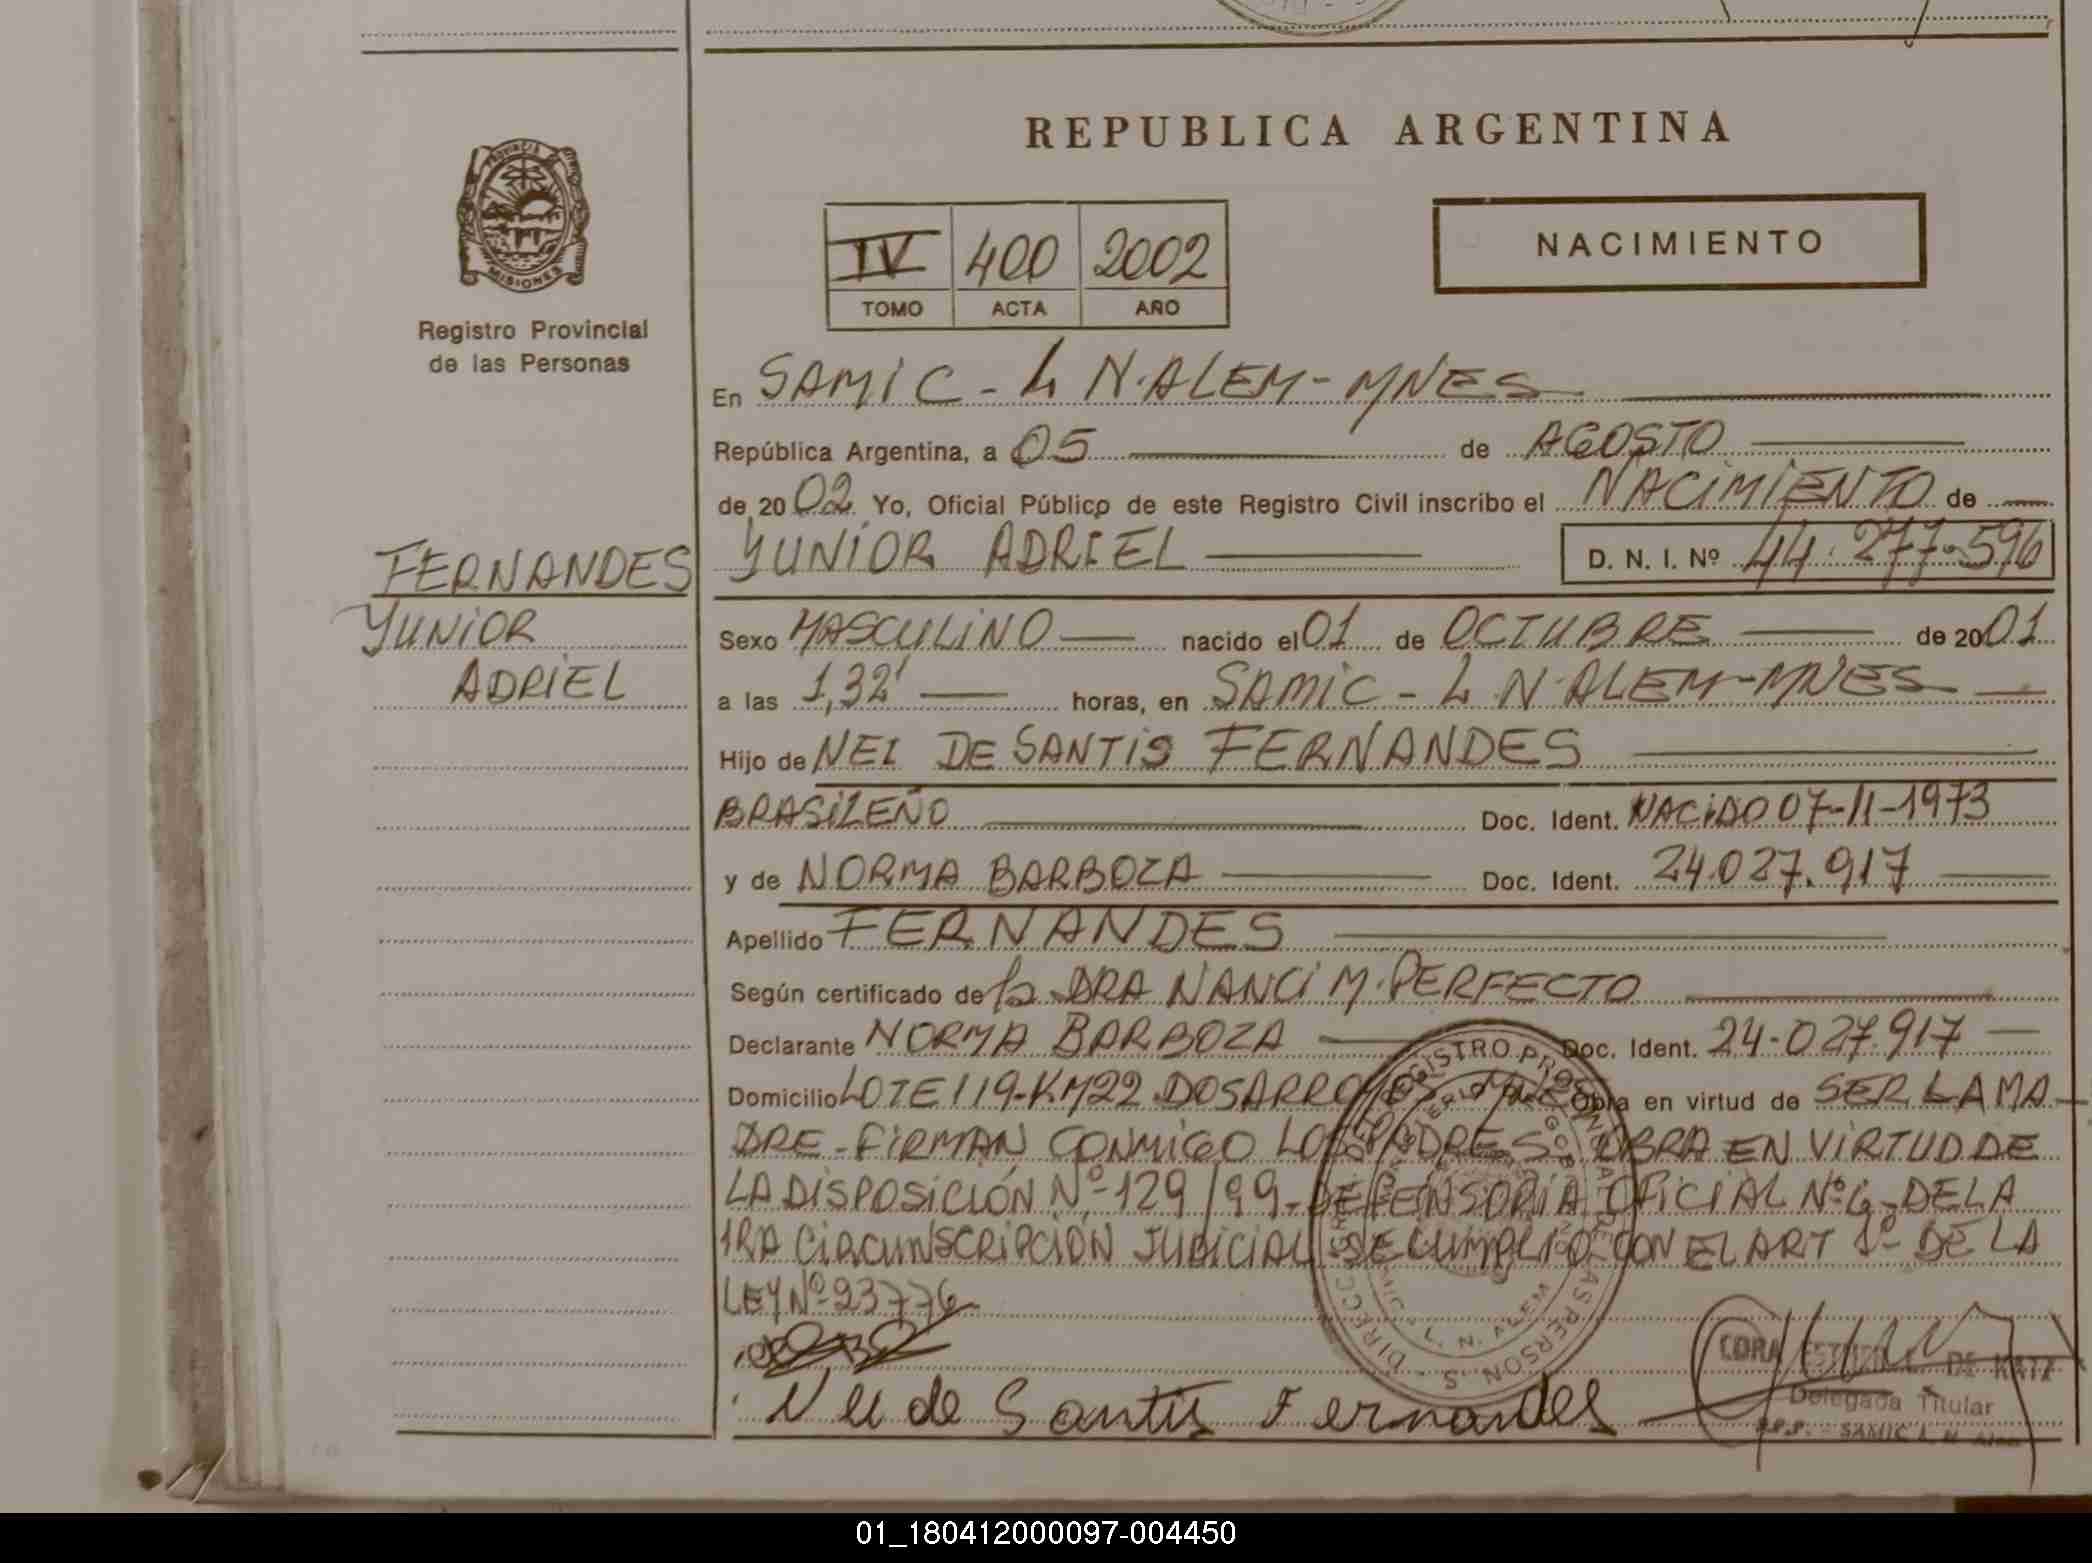 REPUBLICA ARGENTINA
PROVINCIA DE
MISIONES
Registro Provincial
de las Personas
IV 400 2002
TOMO ACTA AÑO
NACIMIENTO
En SAMIC - L N. ALEM - MNES
República Argentina, a 05 de AGOSTO
de 2002 Yo, Oficial Público de este Registro Civil inscribo el NACIMIENTO de
FERNANDES
YUNIOR
ADRIEL
YUNIOR ADRIEL D. N. I. Nº 44.277.596
Sexo MASCULINO nacido el 01 de OCTUBRE de 2001
a las 1,32' horas, en SAMIC - L. N. ALEM - MNES
Hijo de NEI DE SANTIS FERNANDES
BRASILEÑO Doc. Ident. NACIDO 07-11-1973
y de NORMA BARBOZA Doc. Ident. 24.027.917
Apellido FERNANDES
Según certificado de la DRA NANCI M. PERFECTO
Declarante NORMA BARBOZA Doc. Ident. 24.027.917
Domicilio LOTE 119-KM22 DOS ARROYOS MNES Obra en virtud de SER LA MA-
DRE - FIRMAN CONMIGO LOS PADRES OBRA EN VIRTUD DE
LA DISPOSICIÓN Nº 129/99 - DEFENSORIA OFICIAL Nº 6 - DE LA
1RA CIRCUNSCRIPCIÓN JUDICIAL SE CUMPLIO CON EL ART 1º DE LA
LEY Nº 23776
Nei de Santis Fernandes
CORA DE KATZ
Delegada Titular
R.P.P. - SAMIC L. N. Alem
01_180412000097-004450